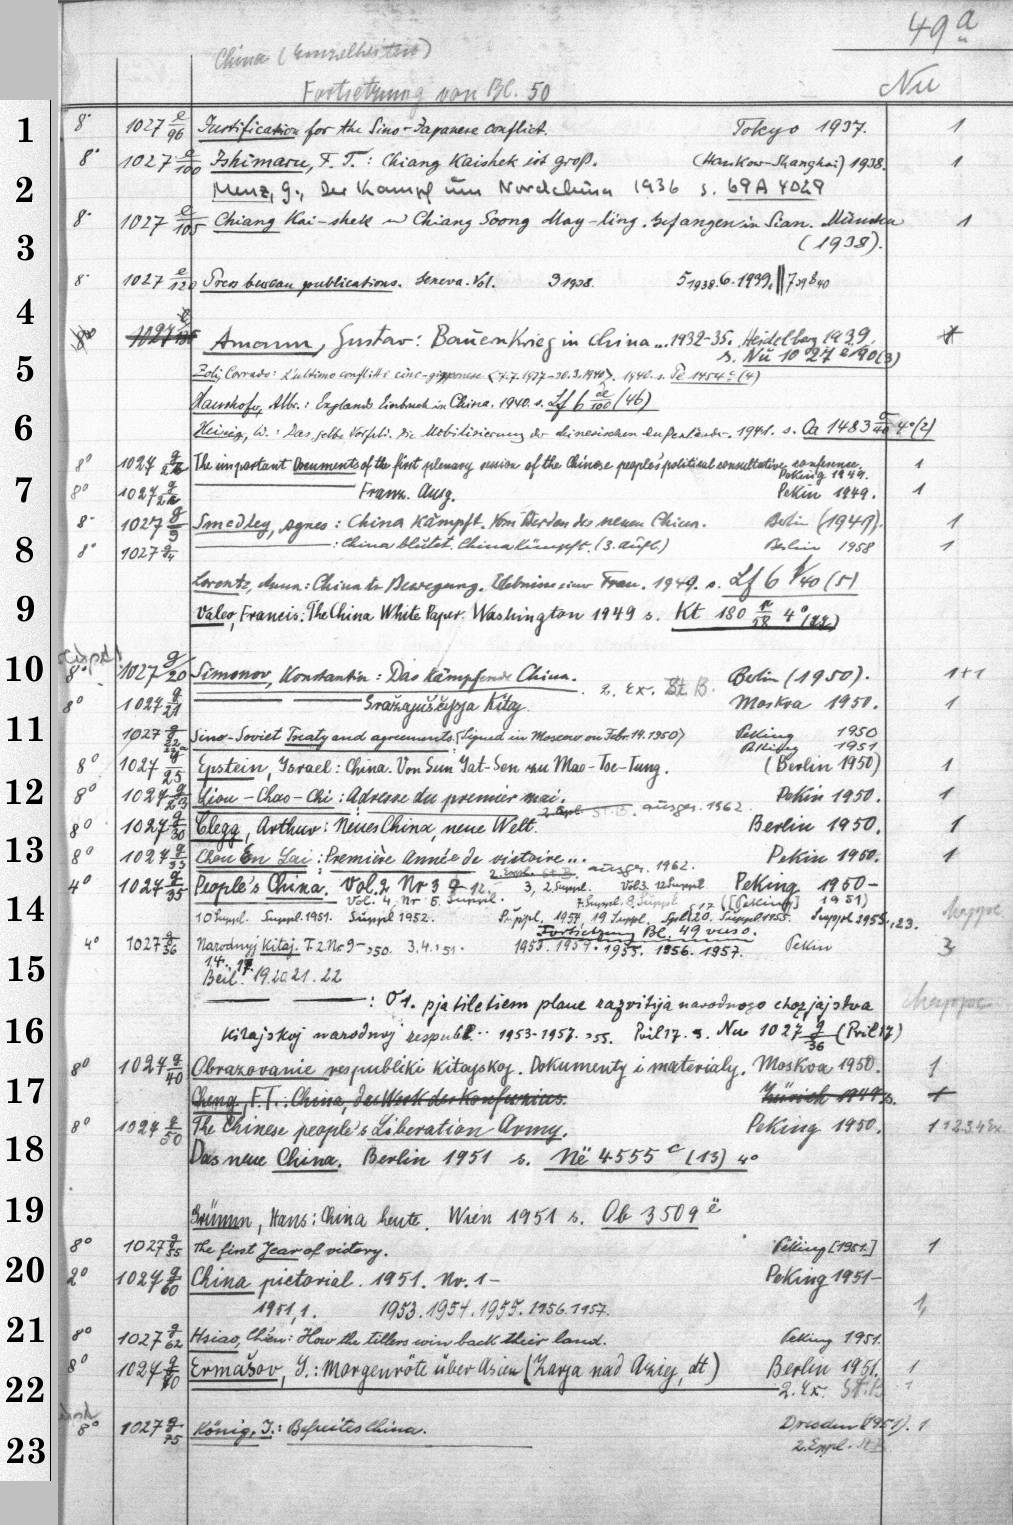 49 a
China (Einzelheiten)
Fortsetzung von Bl. 50 Nu
1 8° 1027 e/96 Justification for the Sino-Japanese conflict. Tokyo 1937. 1
8° 1027 e/100 Ishimaru, F. T.: Chiang Kaishek ist groß. (Hankow-Shanghai) 1938. 1
2 Menz, G., Der Kampf um Nordchina 1936 s. 69 A 4029
8° 1027 e/105 Chiang Kai-shek u Chiang Soong May-ling. Gefangen in Sian. München 1
3 (1938).
8° 1027 e/120 Press bureau publications. Geneva. Vol. 3 1938. 5 1938. 6. 1939. 7 39 8 40
4
8° 1027 Amann, Gustav: Bauernkrieg in China... 1932-35. Heidelberg 1939. 1
s. Nu 1027 e 190(3)
5 Zoli, Corrado: L'ultimo conflitto cino-giapponese (7.7.1937-30.3.1940). 1940. s.
Haushofer, Albr.: Englands Einbruch in China. 1940. s. Lf 6 de/100 (46)
6 1941. s. Oa 1483 4° (2)
8° 1027 g/2 The important Documents of the first plenary session of the Chinese people's political consultative conference. 1
Peking 1949.
7 8° 1027 g/2 Franz. Ausg. Pekin 1949. 1
8° 1027 g/3 Smedley, Agnes: China kämpft. Vom Werden des neuen China. Berlin (1949). 1
8 8° 1027 g/4 : China blutet. China kämpft. (3. Aufl.) Berlin 1958 1
Lorentz, Anna: China in Bewegung. Erlebnisse einer Frau. 1949. s. Lf 6 /40 (5)
9 Valeo, Francis: The China White Paper. Washington 1949 s. Kt 180 /58 4° (22)
10 8° 1027 g/20 Simonov, Konstantin: Das kämpfende China. Berlin (1950). 1+1
2. Ex. St.B.
8° 1027 g/21 Sražajuščijsja Kitaj. Moskva 1950. 1
11 1027 g/22 Sino-Soviet Treaty and agreements. (Signed in Moscow on Febr. 14. 1950) Peking 1950
Peking 1951
8° 1027 g/25 Epstein, Israel: China. Von Sun Yat-Sen zu Mao-Tse-Tung. (Berlin 1950) 1
12 8° 1027 g/ Liou-Chao-Chi: Adresse du premier mai. Pekin 1950. 1
2. Expl. St.B. ausges. 1962.
8° 1027 g/30 Clegg, Arthur: Neues China, neue Welt. Berlin 1950. 1
13 8° 1027 g/33 Chou En Lai: Première Année de victoire... Pekin 1950. 1
2. Expl. St.B. ausges. 1962.
4° 1027 g/35 People's China. Vol. 2 Nr 3 9 12. 3, 2. Suppl. Vol 3. 12 Suppl Peking 1950-
Vol. 4, Nr 5. Suppl. 7. Suppl. 8. Suppl. ([Peking] 1951)
14 10 Suppl. Suppl. 1951. Suppl 1952. Suppl. 1954, 19 Suppl, Spl 20. Suppl 1955. Suppl 1955, 23. Mappe
Fortsetzung Bl. 49 verso.
4° 1027 g/36 Narodnyj Kitaj. T. 2 Nr 9- 3.4. 1953. 1954. 1955. 1956. 1957. Pekin 3
14. 17
15 Beil. 19. 20. 21. 22
: O 1. pjatiletnem plane razvitija narodnogo chozjajstva Mappe
16 Kitajskoj narodnoj respubl... 1953-1957. 1955. Pril 17. s. Nu 1027 g/36 (Pril 17)
8° 1027 g/40 Obrazovanie respubliki Kitajskoj. Dokumenty i materialy. Moskva 1950. 1
17 Cheng, F. T.: China, das Werk des Konfuzius. Zürich 1949 s. 1
8° 1027 g/50 The Chinese people's Liberation Army. Peking 1950. 1
18 Das neue China. Berlin 1951 s. Në 4555 c (13) 4°
19 Grümm, Hans: China heute. Wien 1951 s. Ob 3509 ë
8° 1027 g/55 The first Year of victory. Peking [1951.] 1
20 2° 1027 g/60 China pictorial. 1951. Nr. 1- Peking 1951-
1951,1. 1953. 1954. 1955. 1956. 1957. 1,
21 8° 1027 g/62 Hsiao, Ch'ien: How the tillers win back their land. Peking 1951.
8° 1027 g/70 Ermašov, I.: Morgenröte über Asien (Zarja nad Aziej, dt) Berlin 1951. 1
22 2. Ex. St.B. 1
8° 1027 g/75 König, J.: Befreites China. Dresden (1951). 1
23 2. Expl. St.B.